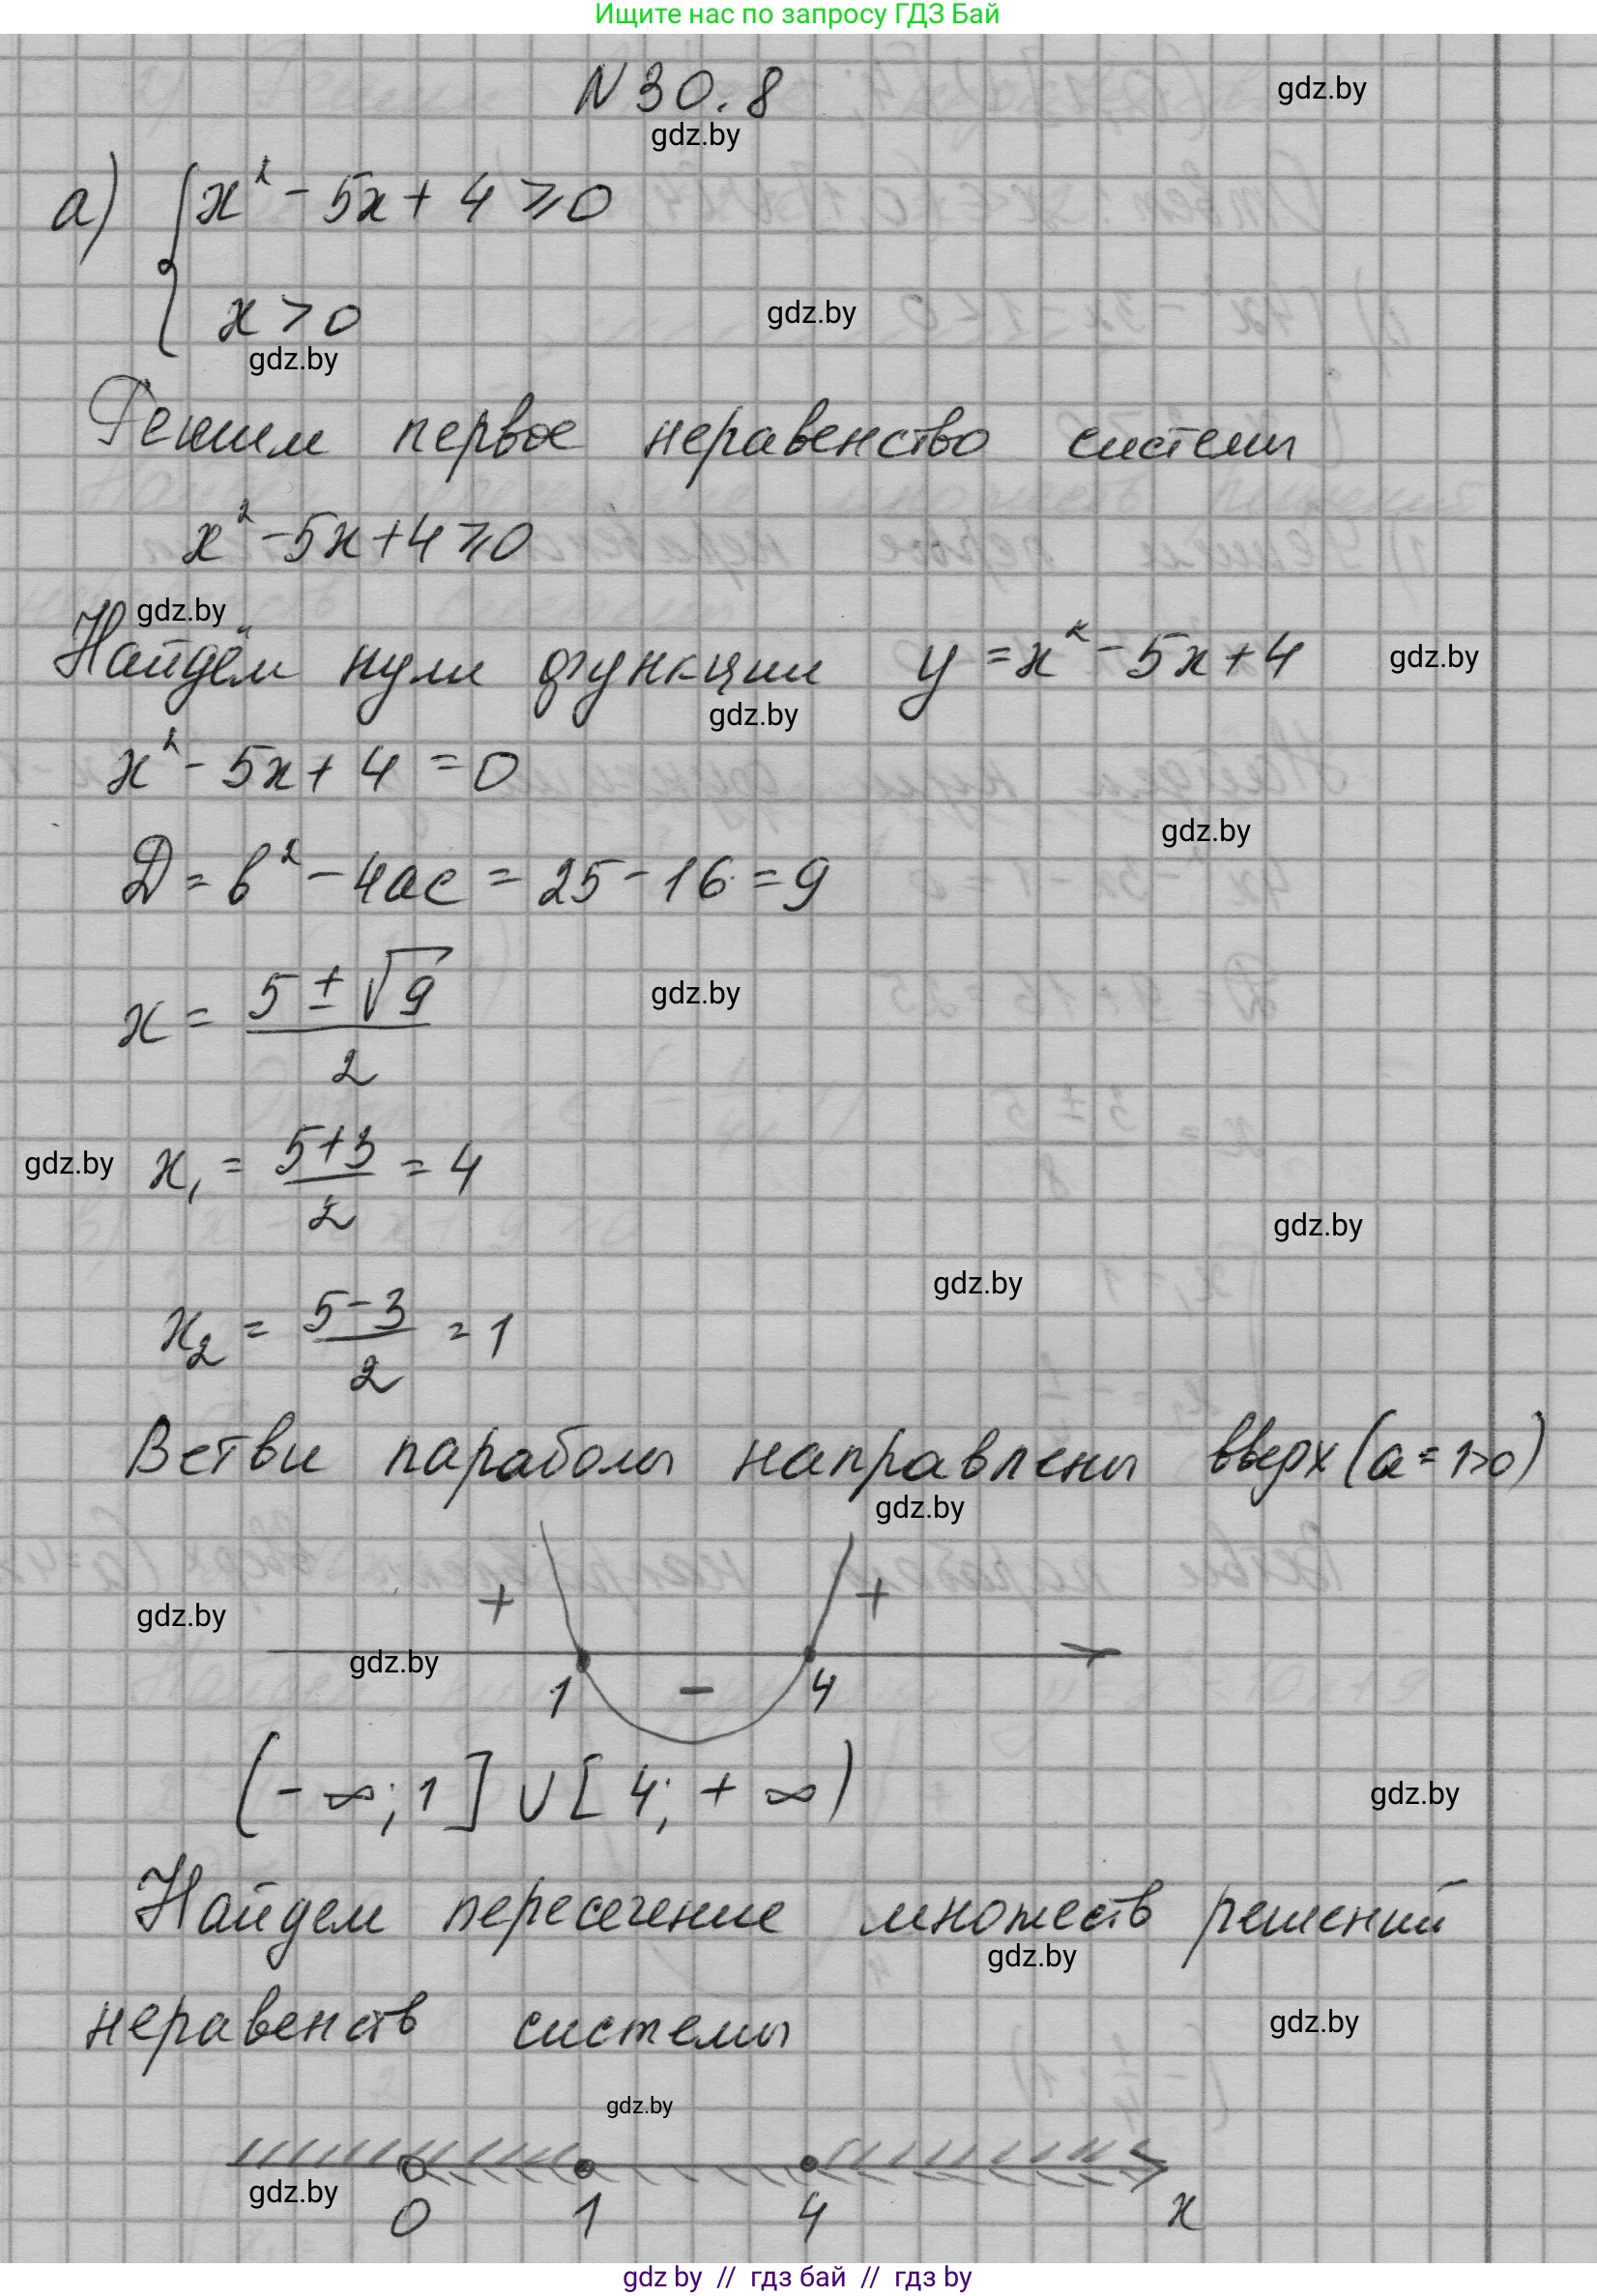 Ищите нас по запросу ГДЗ Бай
N 30.8
gdz.by
gdz.by
а) { x² - 5x + 4 ⩾ 0
x > 0
gdz.by
gdz.by
Решим первое неравенство системы
x² - 5x + 4 ⩾ 0
gdz.by
Найдём нули функции y = x² - 5x + 4
gdz.by
gdz.by
x² - 5x + 4 = 0
gdz.by
D = b² - 4ac = 25 - 16 = 9
x = (5 ± √9) / 2
gdz.by
gdz.by
x₁ = (5+3) / 2 = 4
gdz.by
gdz.by
x₂ = (5-3) / 2 = 1
Ветви параболы направлены вверх (a = 1>0)
gdz.by
+ +
gdz.by
gdz.by
1 - 4
(-∞; 1] ∪ [4; +∞)
gdz.by
Найдем пересечение множеств решений
gdz.by
неравенств системы
gdz.by
gdz.by
gdz.by
0 1 4 x
gdz by // гдз бай // гдз by